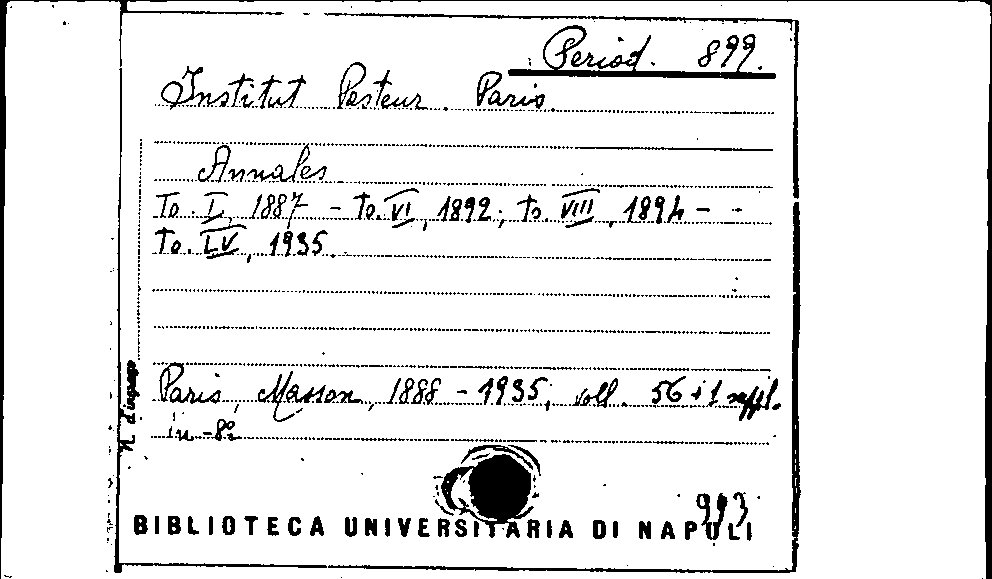 Period. 899.
Institut Pasteur. Paris.
Annales
To. I, 1887 - To. VI, 1892; to. VIII, 1894 - -
To. LV, 1935.
Paris, Masson, 1888 - 1935, voll. 56 + 1 suppl.
in-8º
N. d'ingresso
993
BIBLIOTECA UNIVERSITARIA DI NAPOLI